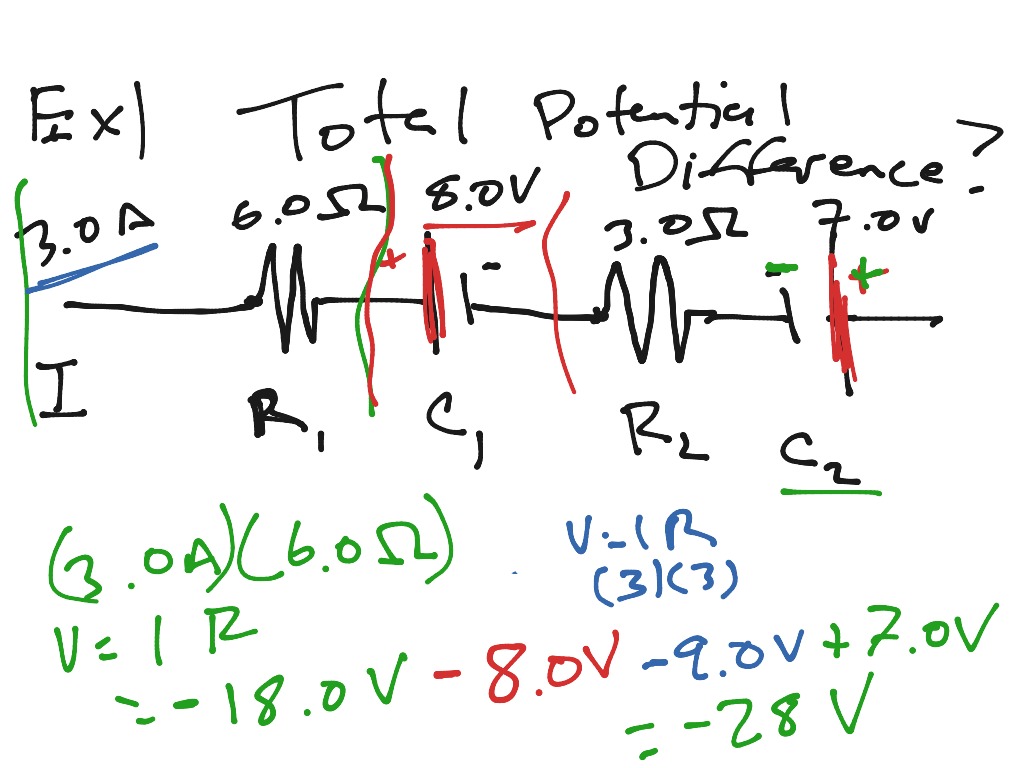 Ex 1 Total Potential
Difference?
3.0A 6.0Ω 8.0V 3.0Ω 7.0V
+ - - +
I R1 C1 R2 C2
(3.0A)(6.0Ω) V=IR
(3)(3)
V=IR
=-18.0V -8.0V -9.0V +7.0V
=-28V